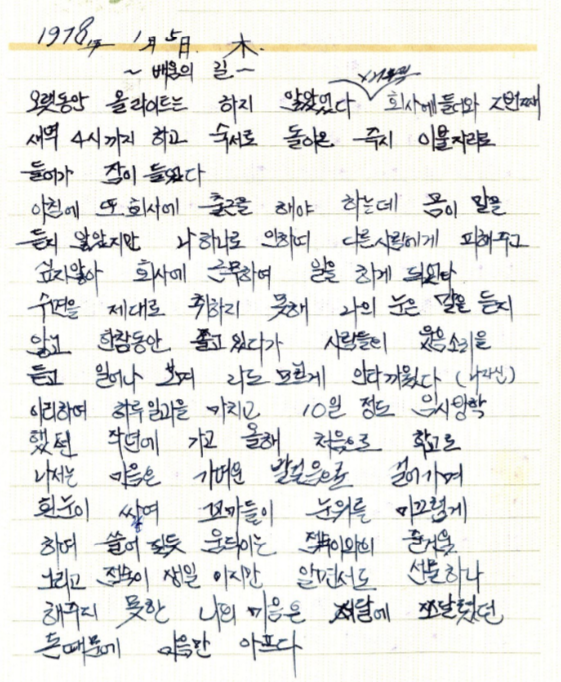 1978年 1月 5日. 木.
~ 배움의 길 ~
오랫동안 올라이트는 하지 않았었다 회사에 들어와
새벽 4시까지 하고 숙서로 돌아온 즉시 이불자리로
들어가 잠이 들었다
아침에 또 회사에 출근을 해야 하는데 몸이 말을
듣지 않았지만 나 하나로 인하여 다른사람에게 피해주고
싶지않아 회사에 근무하여 일을 하게 되었다
수면을 제대로 취하지 못해 나의 눈은 말을 듣지
않고 한참동안 졸고 있다가 사람들의 웃음소리을
듣고 일어나 보며 나도 모르게 안타까웠다 (나자신)
이리하여 하루일과을 마치고 10일 정도 임시방학
했던 작년에 가고 올해 처음으로 학교로
나서는 마음은 가벼운 발걸음으로 걸어가며
흰눈이 쌓여 꼬마들이 눈위를 미끄럽게
하며 쓸어 질듯 움직이는 즐거움
그리고 생일 이지만 알면서도 선물하나
해주지 못한 나의 마음은 저달에 쪼달렸던
돈때문에 마음만 아프다